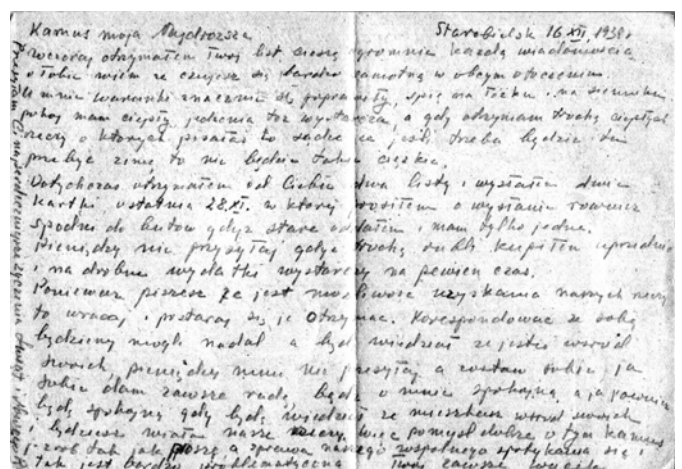 Kamuś moja Najdroższa Starobielsk 16 XII 1939r
wczoraj otrzymałem Twój list cieszę ogromnie każdą wiadomością
o Tobie wiem że czujesz się bardzo samotną w obcym otoczeniu.
U mnie warunki znacznie się poprawiły, śpię na łóżku i na sienniku
pokój mam cieplejszy jedzenia też wystarcza, a gdy otrzymam trochę ciepłych
rzeczy o których pisałaś to sądzę że jeśli trzeba będzie tu
przebyć zimę to nie będzie tak ciężkie.
Dotychczas otrzymałem od Ciebie dwa listy i wysłałem dwie
kartki ostatnia 28.XI. w której prosiłem o wysłanie również
spodni do butów gdyż stare oddałem i mam tylko jedne.
Pieniędzy nie przysyłaj gdyż trochę rubli kupiłem uprzednio
i na drobne wydatki wystarczy na pewien czas.
Ponieważ piszesz że jest możliwość uzyskania naszych rzeczy
to wracaj i postaraj się je otrzymać. Korespondować ze sobą
będziemy mogli nadal a będę wiedział że jesteś wśród
swoich, pieniędzy mnie nie przysyłaj a zostaw sobie ja
sobie dam zawsze radę, bądź o mnie spokojną a ja również
będę spokojny gdy będę wiedział że mieszkasz wśród swoich
i będziesz miała nasze rzeczy, więc pomyśl dobrze o tym Kamuś
i zrób tak jak proszę a sprawa naszego wspólnego spotykania się i
tak jest bardzo problematyczna Twój zawsze
Przesyłam Ci najserdeczniejsze życzenia Świąt